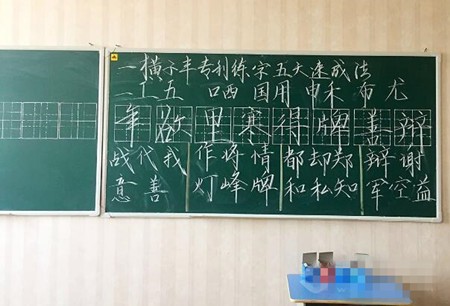 一横子丰专利练宗五大速成法
二工五 口西国用申禾布尤
年欲甲寒得牌善辩
战代我 作将情 都却郑 辩谢
意善 灯峰牌 和私知 军空益